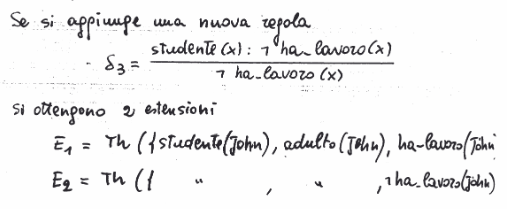 Se si aggiunge una nuova regola
δ₃ = studente(x) : ¬ ha_lavoro(x)
¬ ha_lavoro(x)
si ottengono 2 estensioni
E₁ = Th ({studente(John), adulto(John), ha-lavoro(John
E₂ = Th ({ " , " , ¬ha_lavoro(John)